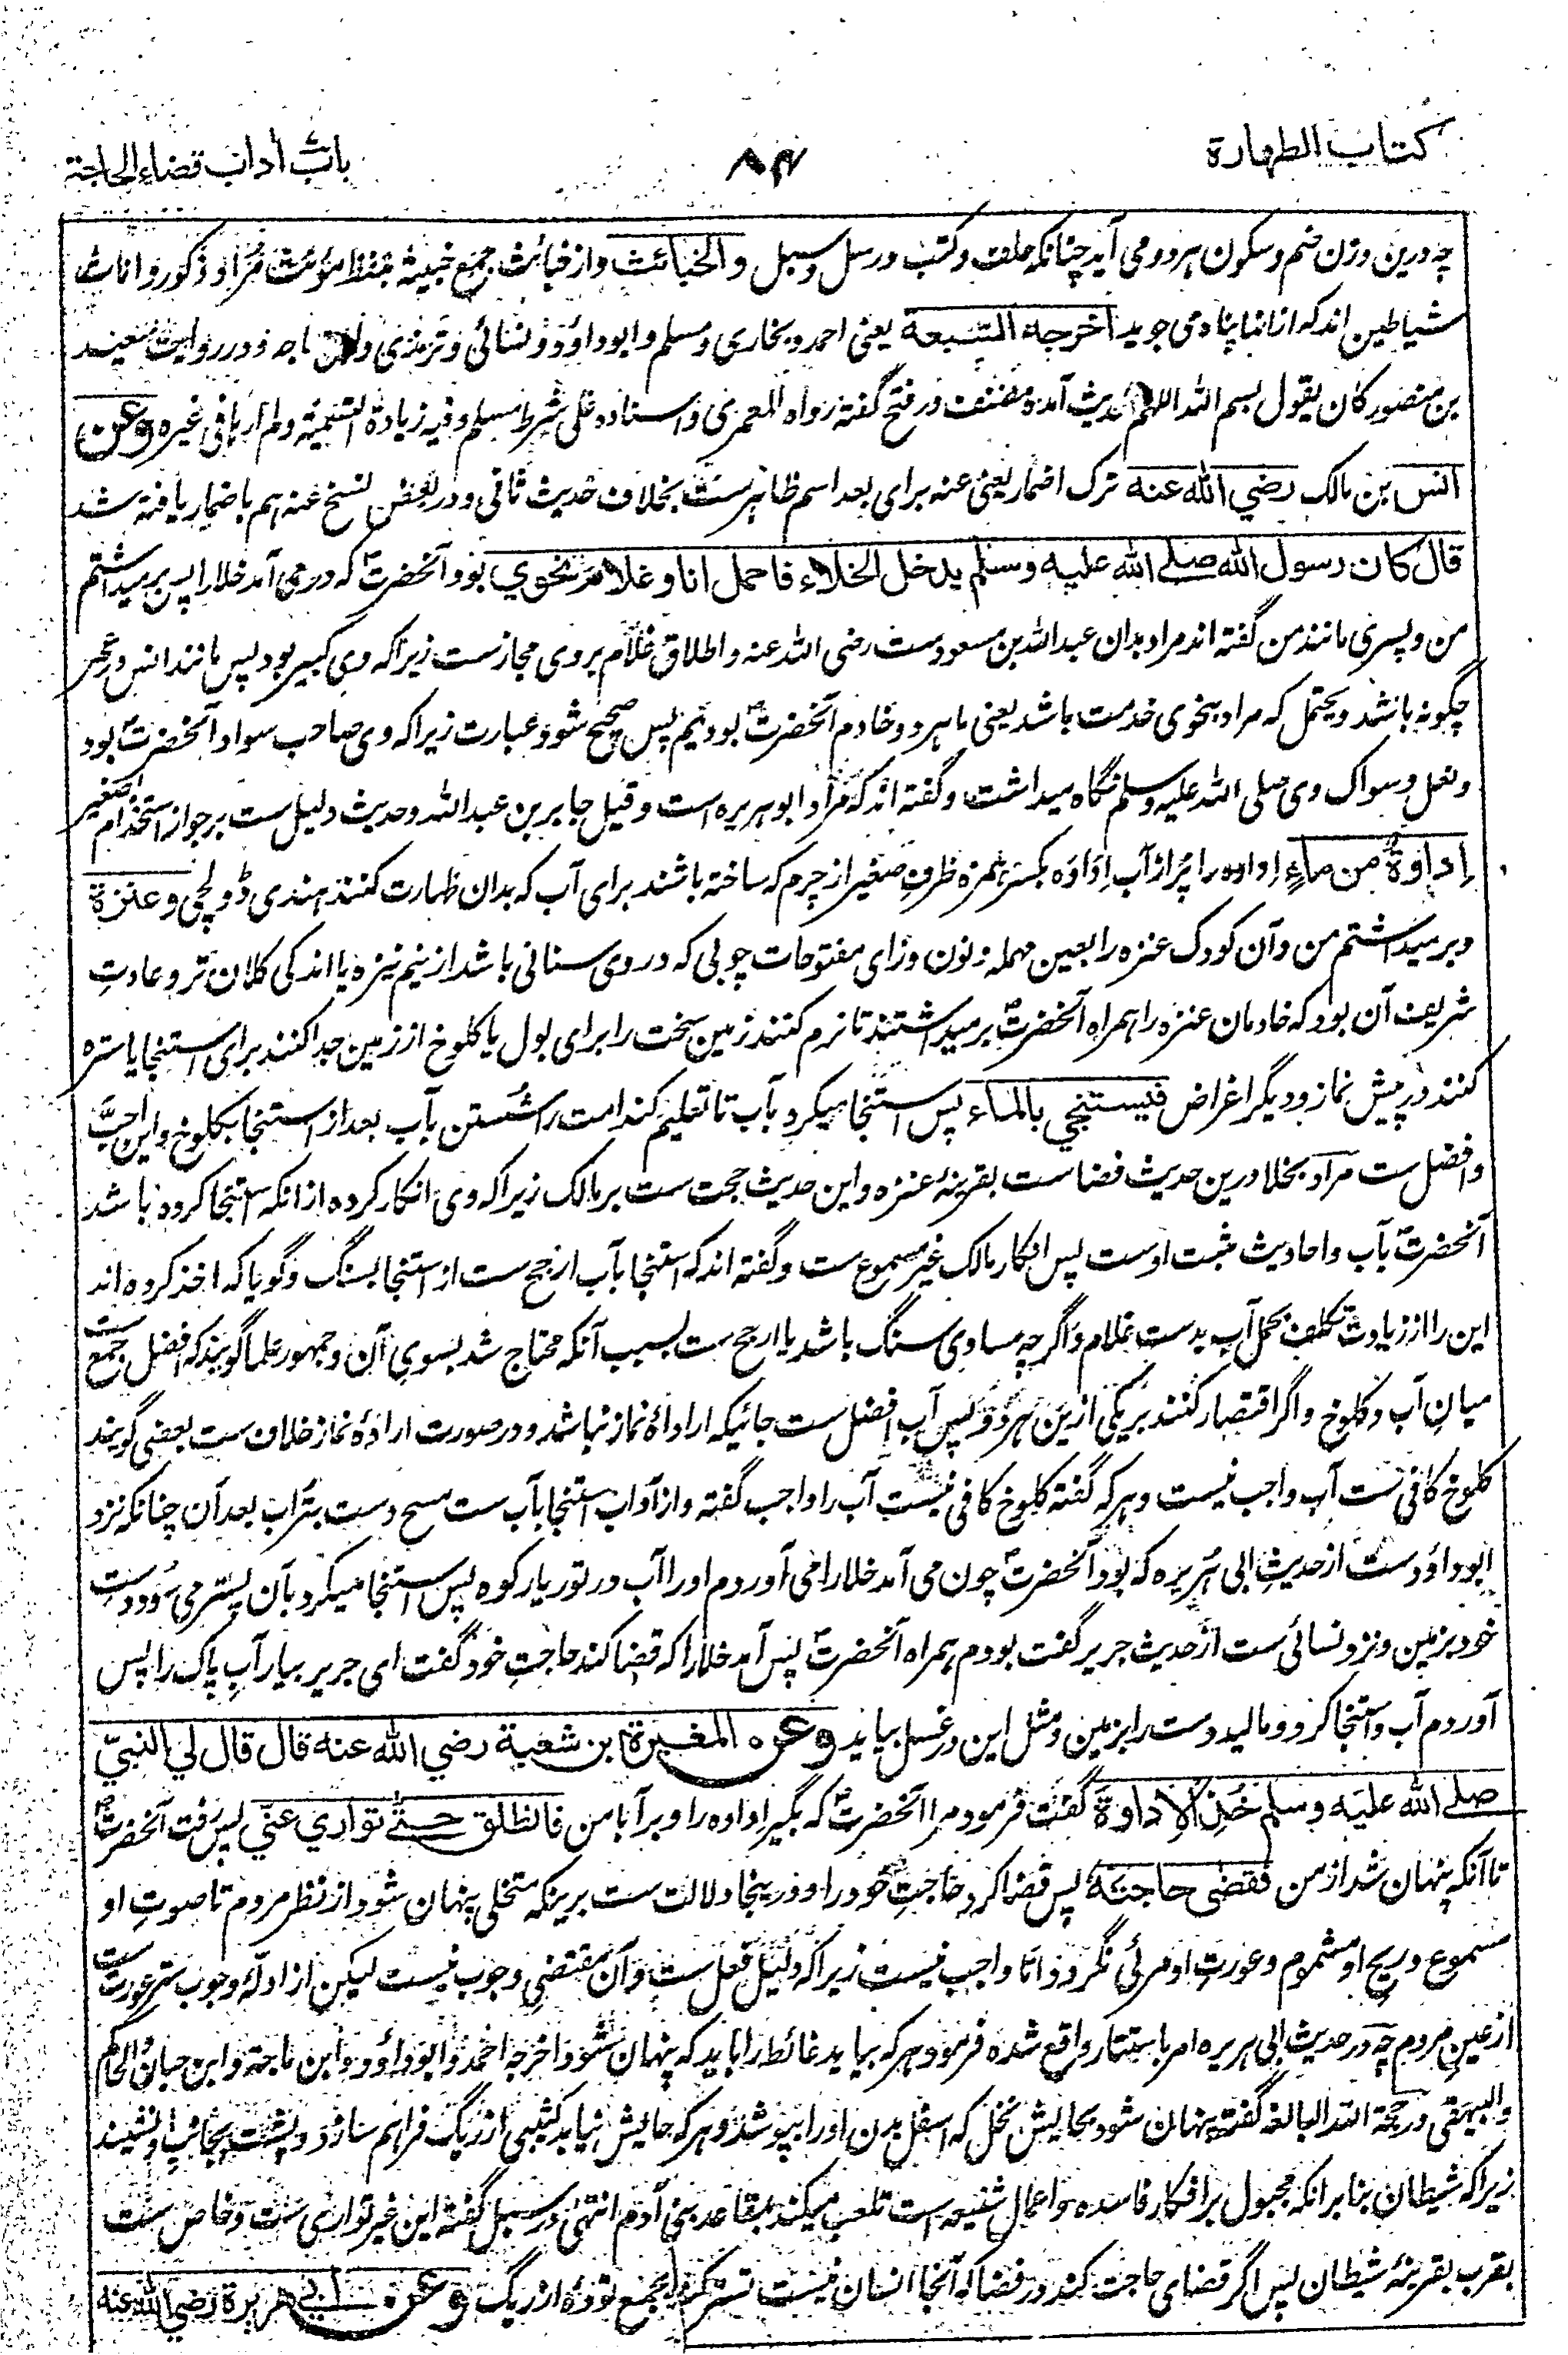 کتاب الطهارة
۸۴
باب أداب قضاء الحاجة
چه درین وزن ضم و سکون هر دو می آید چنانکه خلق و کتب و رسل و سبل والخبائث و از خبائث جمع خبیثه بلفظ مؤنث مراد ذکور و اناث
شیاطین اند که از انها پناه می جوید اخرجه السبعة یعنی احمد و بخاری و مسلم و ابوداؤد و نسائی و ترمذی و ابن ماجه و در روایت سعید
بن منصور کان یقول بسم الله اللهم حدیث آمده مصنف در فتح گفته رواه المعمری و اسناده علی شرط مسلم و فیه زیادة التسمیة و لم ارها فی غیره وعن
انس بن مالك رضي الله عنه ترک اضمار یعنی عنه برای بعد اسم ظاهرست بخلاف حدیث ثانی و در بعض نسخ عنه هم باضمار یافته شد
قال كان رسول الله صلے الله عليه وسلم يدخل الخلاء فاحمل انا وغلام نحوي بود آنحضرت که در می آمد خلا را پس برمیداشتم
من و پسری مانند من گفته اند مراد بدان عبدالله بن مسعودست رضی الله عنه و اطلاق غلام بر وی مجازست زیرا که وی کبیر بود پس مانند انس در عمر
چگونه باشد و یحتمل که مراد بنحوی خدمت باشد یعنی ما هر دو خادم آنحضرت بودیم پس صحیح شود عبارت زیرا که وی صاحب سواد آنحضرت بود
و نعل و سواک وی صلی الله علیه وسلم نگاه میداشت و گفته اند که مراد ابوهریره است و قیل جابر بن عبدالله و حدیث دلیل ست بر جواز استخدام صغیر
إداوة من ماء اداوه را پر از آب اداوه بکسر همزه ظرف صغیر از چرم که ساخته باشند برای آب که بدان طهارت کنند هندی ڈولچی وعنزة
و برمیداشتم من و آن کودک عنزه را بعین مهمله و نون و زای مفتوحات چوبی که در وی سنانی باشد از نیم نیزه یا اندکی کلان تر و عادت
شریف آن بود که خادمان عنزه را همراه آنحضرت برمیداشتند تا نرم کنند زمین سخت را برای بول یا کلوخ از زمین جدا کنند برای استنجا یا ستره
کنند در پیش نماز و دیگر اغراض فيستنجي بالماء پس استنجا میکرد بآب تا تعلیم کند امت را شستن بآب بعد از استنجا بکلوخ و این احب
و افضل ست مراد بخلا درین حدیث فضاست بقرینهٔ عنزه و این حدیث حجت ست بر مالک زیرا که وی انکار کرده از انکه استنجا کرده باشد
آنحضرت بآب و احادیث مثبت اوست پس انکار مالک غیر مسموع ست و گفته اند که استنجا بآب ارجح ست از استنجا بسنگ و گویا که اخذ کرده اند
این را از زیادت تکلف بحمل آب بدست غلام و اگرچه مساوی سنگ باشد یا ارجح ست بسبب آنکه محتاج شد بسوی آن و جمهور علما گویند که افضل جمع ست
میان آب و کلوخ و اگر اقتصار کنند بر یکی ازین هر دو پس آب افضل ست جائیکه ارادهٔ نماز نباشد و در صورت ارادهٔ نماز خلاف ست بعضی گویند
کلوخ کافی ست آب واجب نیست و هر که گفته کلوخ کافی نیست آب را واجب گفته و از آداب استنجا بآب ست مسح دست بتراب بعد آن چنانکه نزد
ابوداؤد ست از حدیث ابی هریره که بود آنحضرت چون می آمد خلا را می آوردم او را آب در تور یا رکوه پس استنجا میکرد بآن پستر می سود دست
خود بزمین و نزد نسائی ست از حدیث جریر گفت بودم همراه آنحضرت پس آمد خلا را که قضا کند حاجت خود گفت ای جریر بیار آب پاک را پس
آوردم آب و استنجا کرد و مالید دست را بزمین و مثل این در غسل بیاید وعن المغيرة ابن شعبة رضي الله عنه قال قال لي النبيّ
صلے الله عليه وسلم خذ الإداوة گفت فرمود مرا آنحضرت که بگیر اداوه را و برآ با من فانطلق حتے توارى عنّي پس رفت آنحضرت
تا آنکه پنهان شد از من فقضى حاجته پس قضا کرد حاجت خود را و درینجا دلالت ست برینکه متخلی پنهان شود از نظر مردم تا صوت او
مسموع و ریح او مشموم و عورت او مرئی نگردد اما واجب نیست زیرا که دلیل فعل ست و آن مقتضی وجوب نیست لیکن از ادلهٔ وجوب ستر عورت ست
از عین مردم چه در حدیث ابی هریره امر باستتار واقع شده فرمود هر که بیاید غائط را باید که پنهان شود اخرجه احمد و ابوداؤد و ابن ماجة و ابن حبان والحاکم
والبیهقی در حجة الله البالغه گفته پنهان شود بحایش نخل که اسفل بدن او را بپوشد و هر که حایش نیابد کثیبی از ریگ فراهم سازد و پشت بجانب او نشیند
زیرا که شیطان بنابر انکه مجبول بر افکار فاسده و اعمال شنیعه است تلعب میکند بمقاعد بنی آدم انتهی در سبل گفته این غیر تواری ست و خاص ست
بقرب بقرینهٔ شیطان پس اگر قضای حاجت کند در فضا که آنجا انسان نیست تستر کند بجمع تودهٔ از ریگ وعن ابي هريرة رضي الله عنه